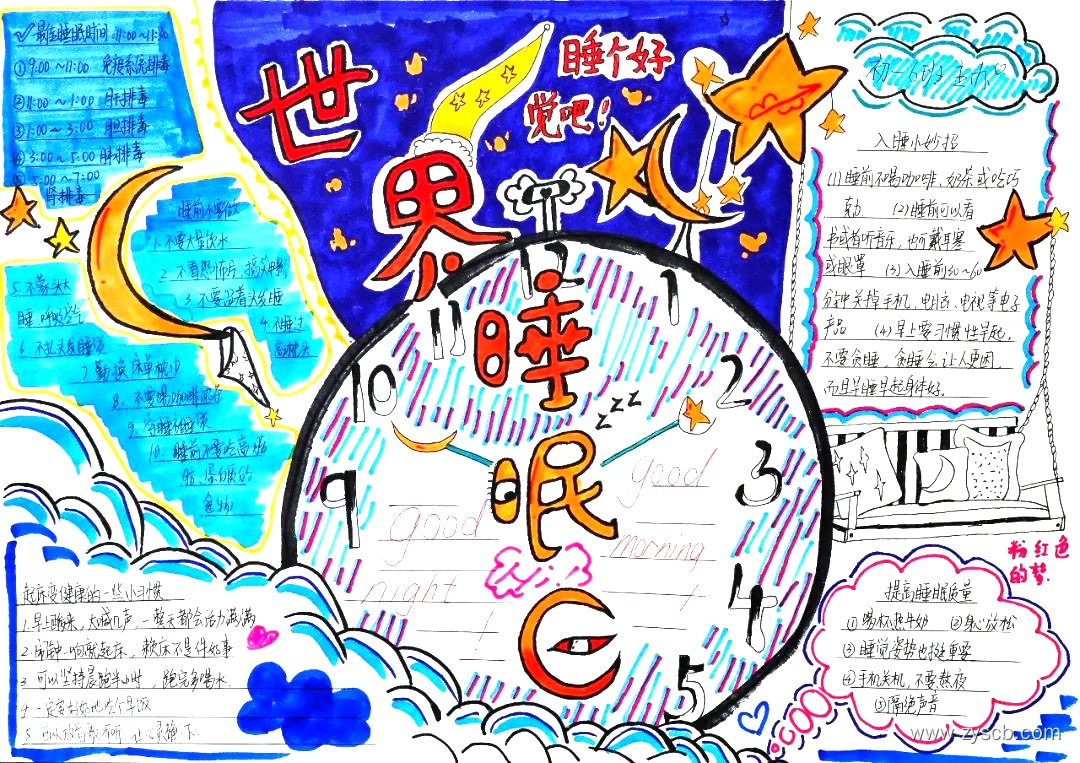 世界睡眠
睡个好
觉吧！
✓最佳睡眠时间：11:00~11:30
①9:00~11:00 免疫系统排毒
②11:00~1:00 肝排毒
③1:00~3:00 胆排毒
④3:00~5:00 肺排毒
⑤5:00~7:00
肾排毒
睡前不要做
1.不要大量饮水
2.不看恐怖片
3.不要
4.不睡过
高枕头
5.不蒙头
睡
6.不扎头发睡觉
7.勤换床单枕巾
8.不要喝咖啡
9.
10.睡前不要吃高脂
蛋白质的
食物
起床变健康的一些小习惯
1.早上醒来，大喊几声，一整天都会活力满满
2.闹钟一响就起床，赖床不是件好事
3.可以坚持晨跑半小时，跑完多喝水.
4.一定要好好地吃个早饭
5.
12
1
2
3
4
5
9
10
11
zzz
good
night
！
good
morning
！
初一
入睡小妙招
(1)睡前不喝咖啡、奶茶或吃巧
克力 (2)睡前可以看
书或者听音乐，也可戴耳塞
或眼罩 (3)入睡前30~60
分钟关掉手机、电脑、电视等电子
产品 (4)早上要习惯性早起，
不要贪睡，贪睡会让人更困，
而且早睡早起身体好.
粉红色
的梦.
提高睡眠质量
①喝杯热牛奶 ②身心放松
③睡觉姿势也挺重要
④手机关机，不要熬夜
⑤隔绝声音
www.zyscb.com